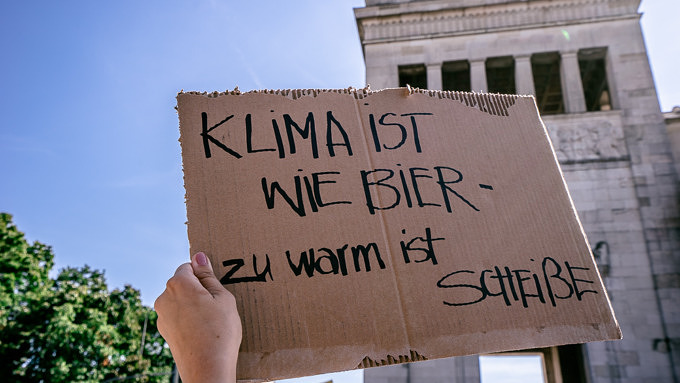 KLIMA IST
WIE BIER-
zu warm ist
SCHEIßE